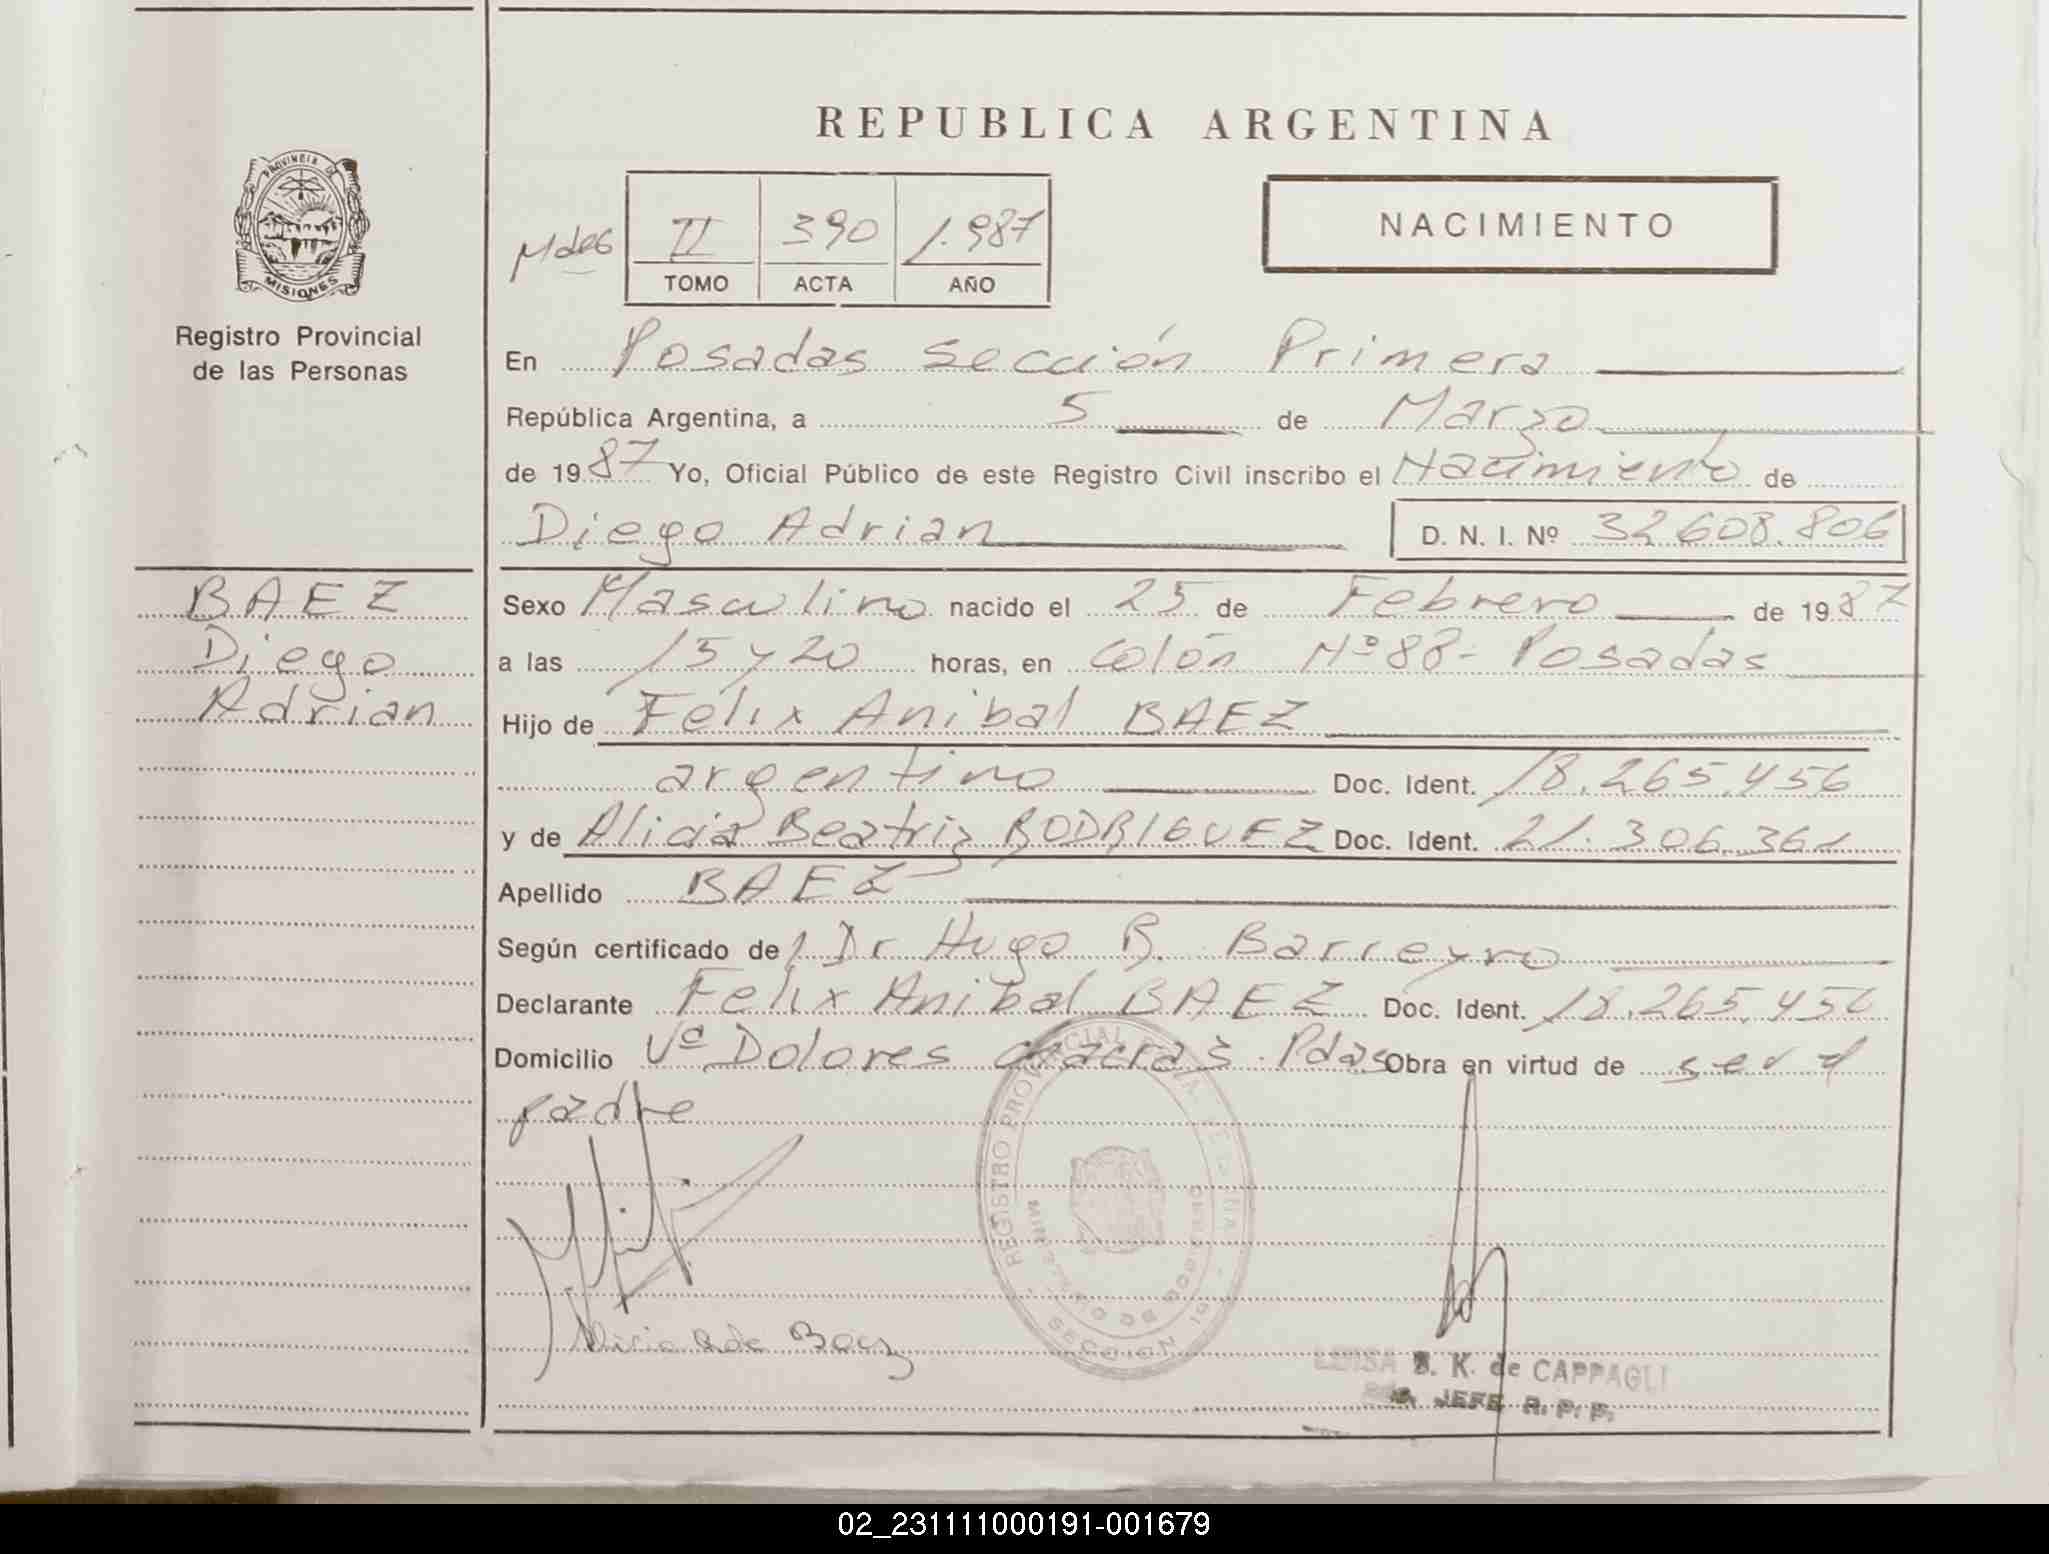 PROVINCIA DE
MISIONES
Registro Provincial
de las Personas
BAEZ
Diego
Adrian
REPUBLICA ARGENTINA
II 390 1.987
TOMO ACTA AÑO
NACIMIENTO
En Posadas sección Primera
República Argentina, a 5 de Marzo
de 1987 Yo, Oficial Público de este Registro Civil inscribo el Nacimiento de
Diego Adrian D. N. I. Nº 32608.806
Sexo Masculino nacido el 25 de Febrero de 1987
a las 15 y 20 horas, en Colón Nº 88- Posadas
Hijo de Felix Anibal BAEZ
argentino Doc. Ident. 18.265.456
y de Alicia Beatriz RODRIGUEZ Doc. Ident. 21.306.361
Apellido BAEZ
Según certificado de Dr Hugo R. Barreyro
Declarante Felix Anibal BAEZ Doc. Ident. 18.265.456
Domicilio Vª Dolores chacras Pdas Obra en virtud de ser el
padre
REGISTRO PROVINCIAL
SECCION 1ª
Alicia R de Baez
LUISA B. K. de CAPPAGLI
JEFE R. P. P.
02_231111000191-001679